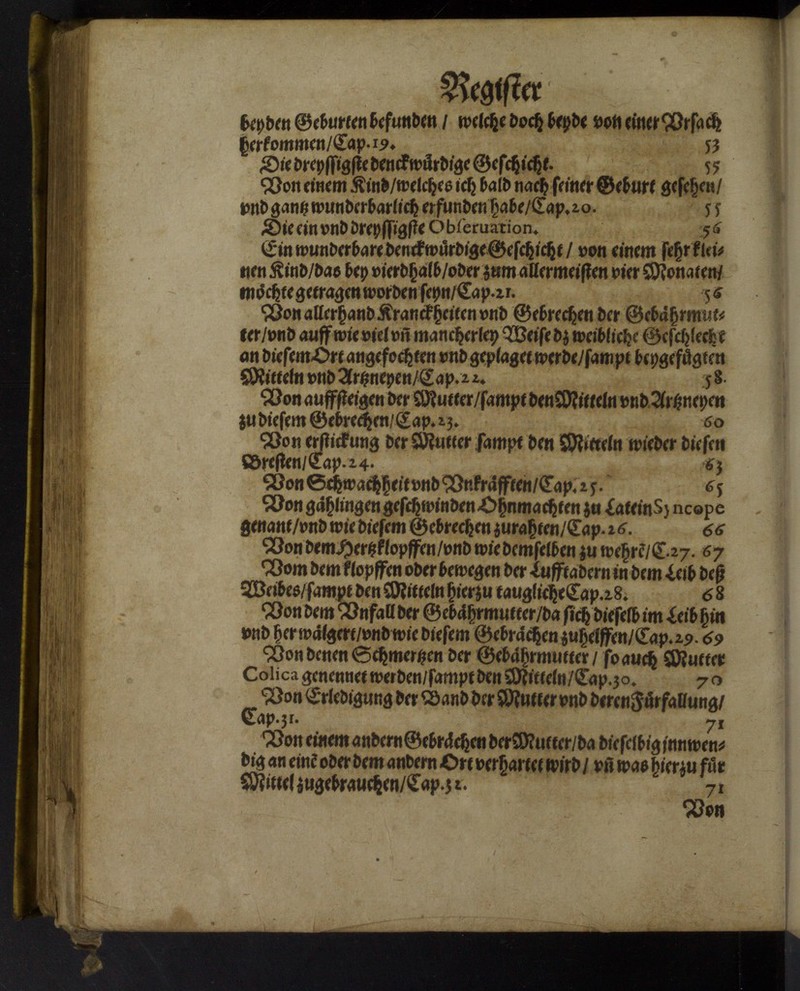 Register
beyden Geburten befunden / welche doch beyde von einer Vrsach
herkommen/Cap.19. 53
Die dreyssigste denckwürdige Geschicht. 55
Von einem Kind/welches ich bald nach seiner Geburt gesehen/
vnd gantz wunderbarlich erfunden habe/Cap.20. 55
Die ein vnd dreyssigste Obseruation. 56
Ein wunderbare denckwürdige Geschicht / von einem sehr klei⸗
nen Kind/das bey vierdhalb/oder zum allermeisten vier Monaten/
möchte getragen worden seyn/Cap.21. 56
Von allerhand Kranckheiten vnd Gebrechen der Gebährmut⸗
ter/vnd auff wie viel vñ mancherley Weise dz weibliche Geschlecht
an diesem Ort angefochten vnd geplaget werde/sampt beygefügten
Mitteln vnd Artzneyen/Cap.22. 58.
Von auffsteigen der Mutter/sampt den Mitteln vnd Artzneyen
zu diesem Gebrechen/Cap.23. 60
Von erstickung der Mutter sampt den Mitteln wieder diesen
Bresten/Cap.24. 63
Von Schwachheit vnd Vnkräfften/Cap.25. 65
Von gählingen geschwinden Ohnmachten zu Latein Syncope
genant/vnd wie diesem Gebrechen zurahten/Cap.26. 66
Von dem Hertzklopffen/vnd wie demselben zu wehrē/C.27. 67
Vom dem klopffen oder bewegen der Lufftadern in dem Leib deß
Weibes/sampt den Mitteln hierzu taugliche Cap.28. 68
Von dem Vnfall der Gebährmutter/da sich dieselb im Leib hin
vnd her wälgert/vnd wie diesem Gebrächen zuhelffen/Cap.29. 69
Von denen Schmertzen der Gebährmutter / so auch Mutter
Colica genennet werden/sampt den Mitteln/Cap.30. 70
Von Erledigung der Band der Mutter vnd deren Fürfallung/
Cap.31. 71
Von einem andern Gebrächen der Mutter/da dieselbig innwen⸗
dig an einē oder dem andern Ort verhartet wird / vñ was hierzu für
Mittel zugebrauchen/Cap.32. 71
Von